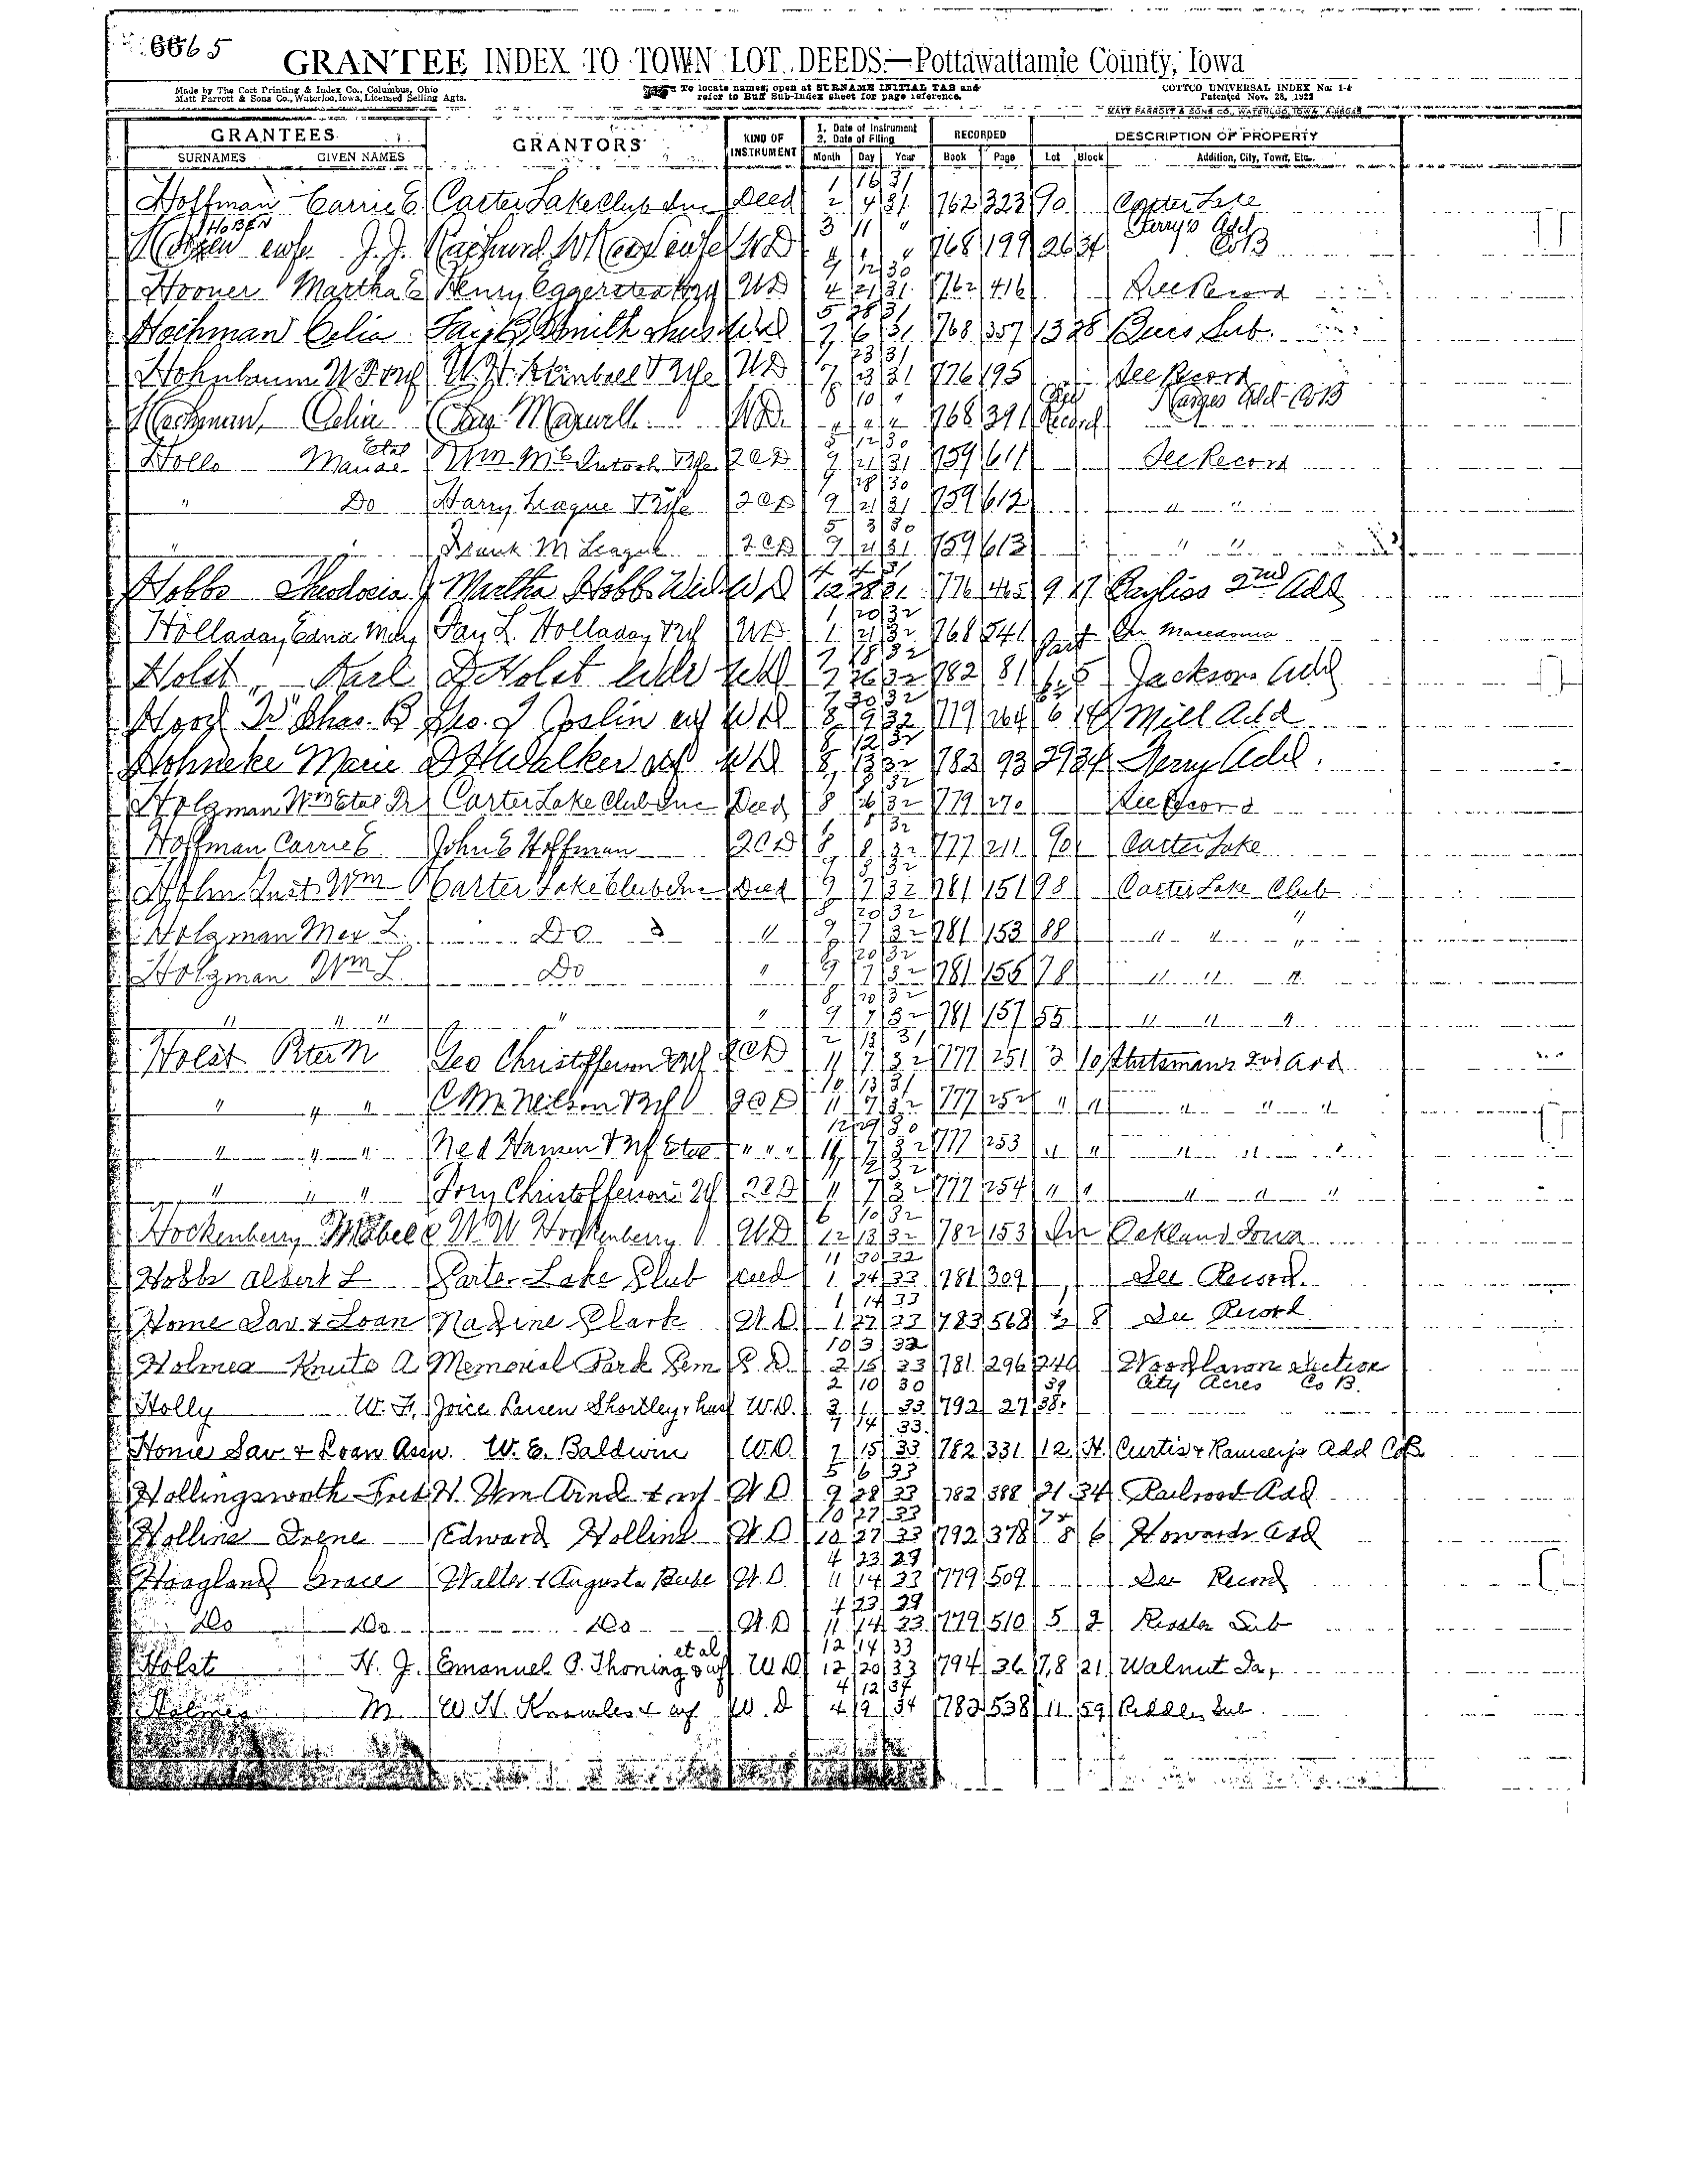 6665
GRANTEE INDEX TO TOWN LOT DEEDS.—Pottawattamie County, Iowa
Made by The Cott Printing & Index Co., Columbus, Ohio
Matt Parrott & Sons Co., Waterloo, Iowa, Licensed Selling Agts.
To locate names, open at SURNAME INITIAL TAB and
refer to Buff Sub-Index sheet for page reference.
COTTCO UNIVERSAL INDEX No. 1-4
Patented Nov. 28, 1922
MATT PARROTT & SONS CO., WATERLOO, IOWA
GRANTEES GRANTORS KIND OF INSTRUMENT 1. Date of Instrument 2. Date of Filing RECORDED DESCRIPTION OF PROPERTY
SURNAMES GIVEN NAMES Month Day Year Book Page Lot Block Addition, City, Town, Etc.
1 16 31
Hoffman Carrie E. Carter Lake Club Inc Deed 2 4 31 762 323 90 Carter Lake
HOBEN 3 11 " Ferry's Add
J. J. WD 768 199 26 34 CoB
9 12 30
Hoover Martha E Henry WD 4 21 31 762 416 See Record
5 28 31
Hochman Celia Smith & hus WD 7 6 31 768 357 13 28 Beers Sub.
7 23 31
Hohnbaum W F & wf W. H. Kimball & Wife WD 7 23 31 776 195 See Record
8 10 " See Add - CoB
Hochman, Celia Maxwell WD. " " " 768 391 Record
Etal 5 12 30
Hollo Wm McIntosh & Wife QCD 9 21 31 759 611 See Record
9 28 30
" Do Harry League & Wife QCD 9 21 31 759 612 " "
5 3 30
" " Frank M League QCD 9 21 31 759 613 " "
4 4 31
Hobbs Theodosia J Martha Hobbs Wid WD 12 28 31 776 465 9 17 Bayliss 2nd Add
1 20 32
Holladay Edna May Fay L. Holladay & wf WD 1 21 32 768 541 Part In Macedonia
7 18 32
Holst Karl D Holst WD 7 26 32 782 81 5 Jackson Add
7 30 32
Hood Chas. B Geo. J Joslin & wf WD 8 9 32 779 264 6 14 Mill Add
8 12 32
Hohneke Marie D H Walker & wf WD 8 13 32 782 93 29 34 Ferry Add.
Holzman Wm Etal Tr Carter Lake Club Inc Deed 8 26 32 779 270 See Record
Hoffman Carrie E John E Hoffman QCD 8 18 32 777 211 90 Carter Lake
Wm Carter Lake Club Inc Deed 9 7 32 781 151 98 Carter Lake Club
8 20 32 "
Holzman Max L. Do " 9 7 32 781 153 88 " " "
8 20 32
Holzman Wm L Do " 9 7 32 781 155 78 " " "
8 20 32
" " " " " 9 7 32 781 157 55 " " "
2 13 31
Holst Peter M Geo Christofferson & wf QCD 11 7 32 777 251 2 10 Stutsman's 2nd Add
10 13 31
" " " C M Nelson & wf QCD 11 7 32 777 252 " " " " "
12 29 30
" " " Ned Hansen & wf Etal " " " 11 7 32 777 253 " " " " "
" " " Tony Christofferson & wf QCD 11 7 32 777 254 " " " " "
6 10 32
Hockenberry Mabel C W. W Hockenberry WD 12 13 32 782 153 In Oakland Iowa
11 30 32
Hobbs Albert L Carter Lake Club Deed 1 24 33 781 309 See Record.
1 14 33
Home Sav & Loan Nadine Clark W.D. 1 27 33 783 568 8 See Record
10 3 32
Holmes Knute A Memorial Park Cem C. D. 2 15 33 781 296 240 Woodlawn Section
2 10 30 39 City Acres Co B.
Holly W. F. Joice Larsen Shortley, hus W.D. 3 1 33 792 27 38.
7 14 33
Home Sav. & Loan Assn. W. E. Baldwin W.D. 7 15 33 782 331 12 H Curtis & Ramsey's Add CoB
5 6 33
Hollingsworth Fred H. Wm Arnd & wf W D 9 28 33 782 388 21 34 Railroad Add
10 27 33 7 &
Hollins Irene Edward Hollins W.D 10 27 33 792 378 8 6 Howards Add
4 23 29
Hoagland Grace Walter & Augusta Beebe W.D. 11 14 33 779 509 See Record
4 23 29
Do Do Do W.D 11 14 33 779 510 5 2 Sub
et al 12 14 33
Holst H. J. Emanuel P. Thoning & wf W D 12 20 33 794 36 7,8 21 Walnut Ia,
4 12 34
Holmes M W. H. Knowles & wf W. D 4 9 34 782 538 11 59 Riddles Sub.